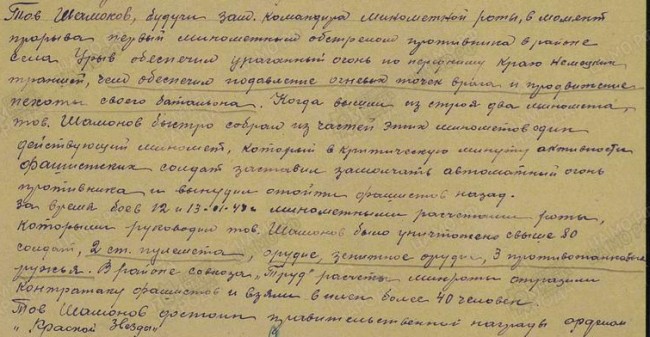 Тов. Шамонов, будучи зам. командира минометной роты, в момент
прорыва первый минометным обстрелом противника в районе
села Урыв обеспечил ураганный огонь по переднему краю немецких
траншей, чем обеспечил подавление огневых точек врага и продвижение
пехоты своего батальона. Когда вышли из строя два миномета,
тов. Шамонов быстро собрал из частей этих минометов один
действующий миномет, который в критическую минуту активности
фашистских солдат заставил замолчать автоматный огонь
противника и вынудил отойти фашистов назад.
За время боев 12 и 13.01.43г минометными расчетами роты,
которыми руководил тов. Шамонов было уничтожено свыше 80
солдат, 2 ст. пулемета, орудие, зенитное орудие, 3 противотанковые
ружья. В районе совхоза "Труд" расчеты минроты отразили
контратаку фашистов и взяли в плен более 40 человек.
Тов Шамонов достоин правительственной награды орденом
"Красной Звезды"